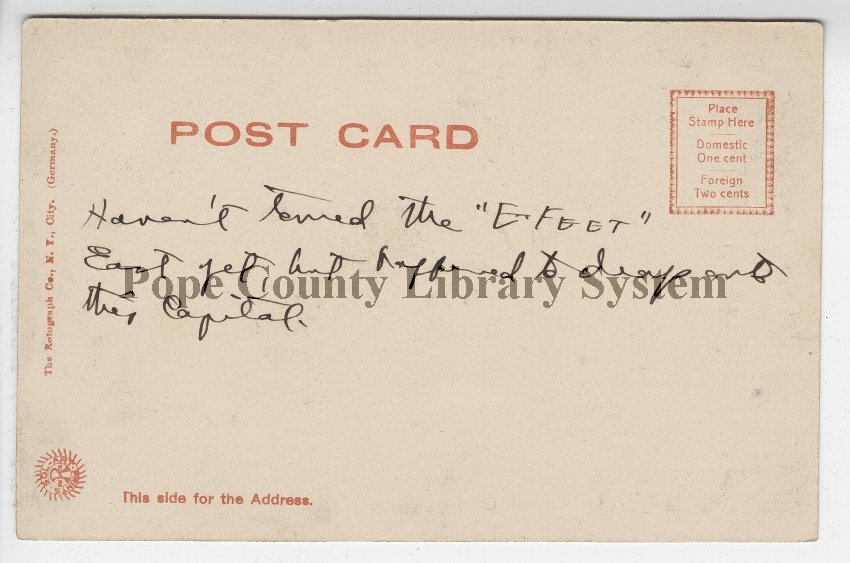 POST CARD
Place
Stamp Here
Domestic
One cent
Foreign
Two cents
The Rotograph Co., N. Y., City. (Germany.)
Haven't toured the "E-FEET"
East yet, but happened to drop onto
this Capital.
Pope County Library System
This side for the Address.